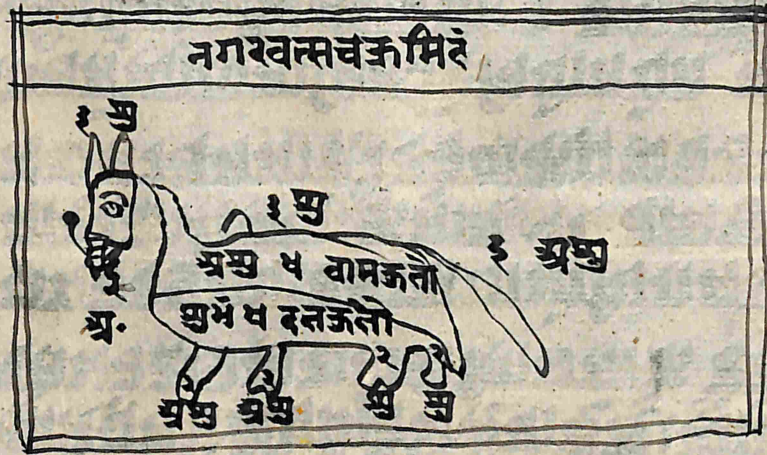 नगरवत्सचक्रमिदं
३ शु
३ शु
३ अशु
अशु ४ वामकुक्षौ
शुभं ४ दक्षकुक्षौ
अ॰
२ २
अशु अशु शु शु